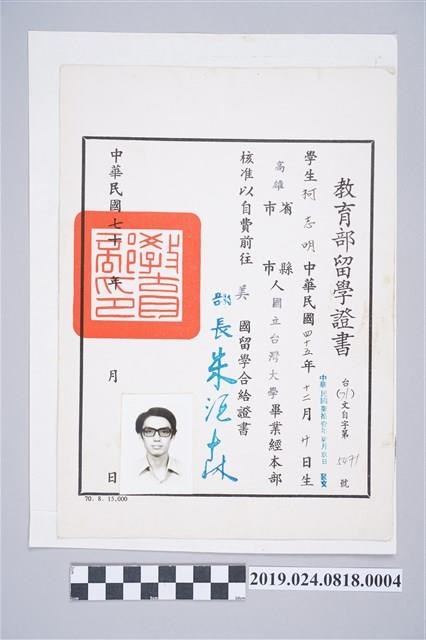 教育部留學證書
台(71)文自字第5071號
學生柯志明中華民國四十五年十二月廿日生
高雄 省市 縣市人國立台灣大學畢業經本部
核准以自費前往美國留學合給證書
部長朱滙森
中華民國七十 年 月 日
教育部印
70. 8. 15,000
2019.024.0818.0004